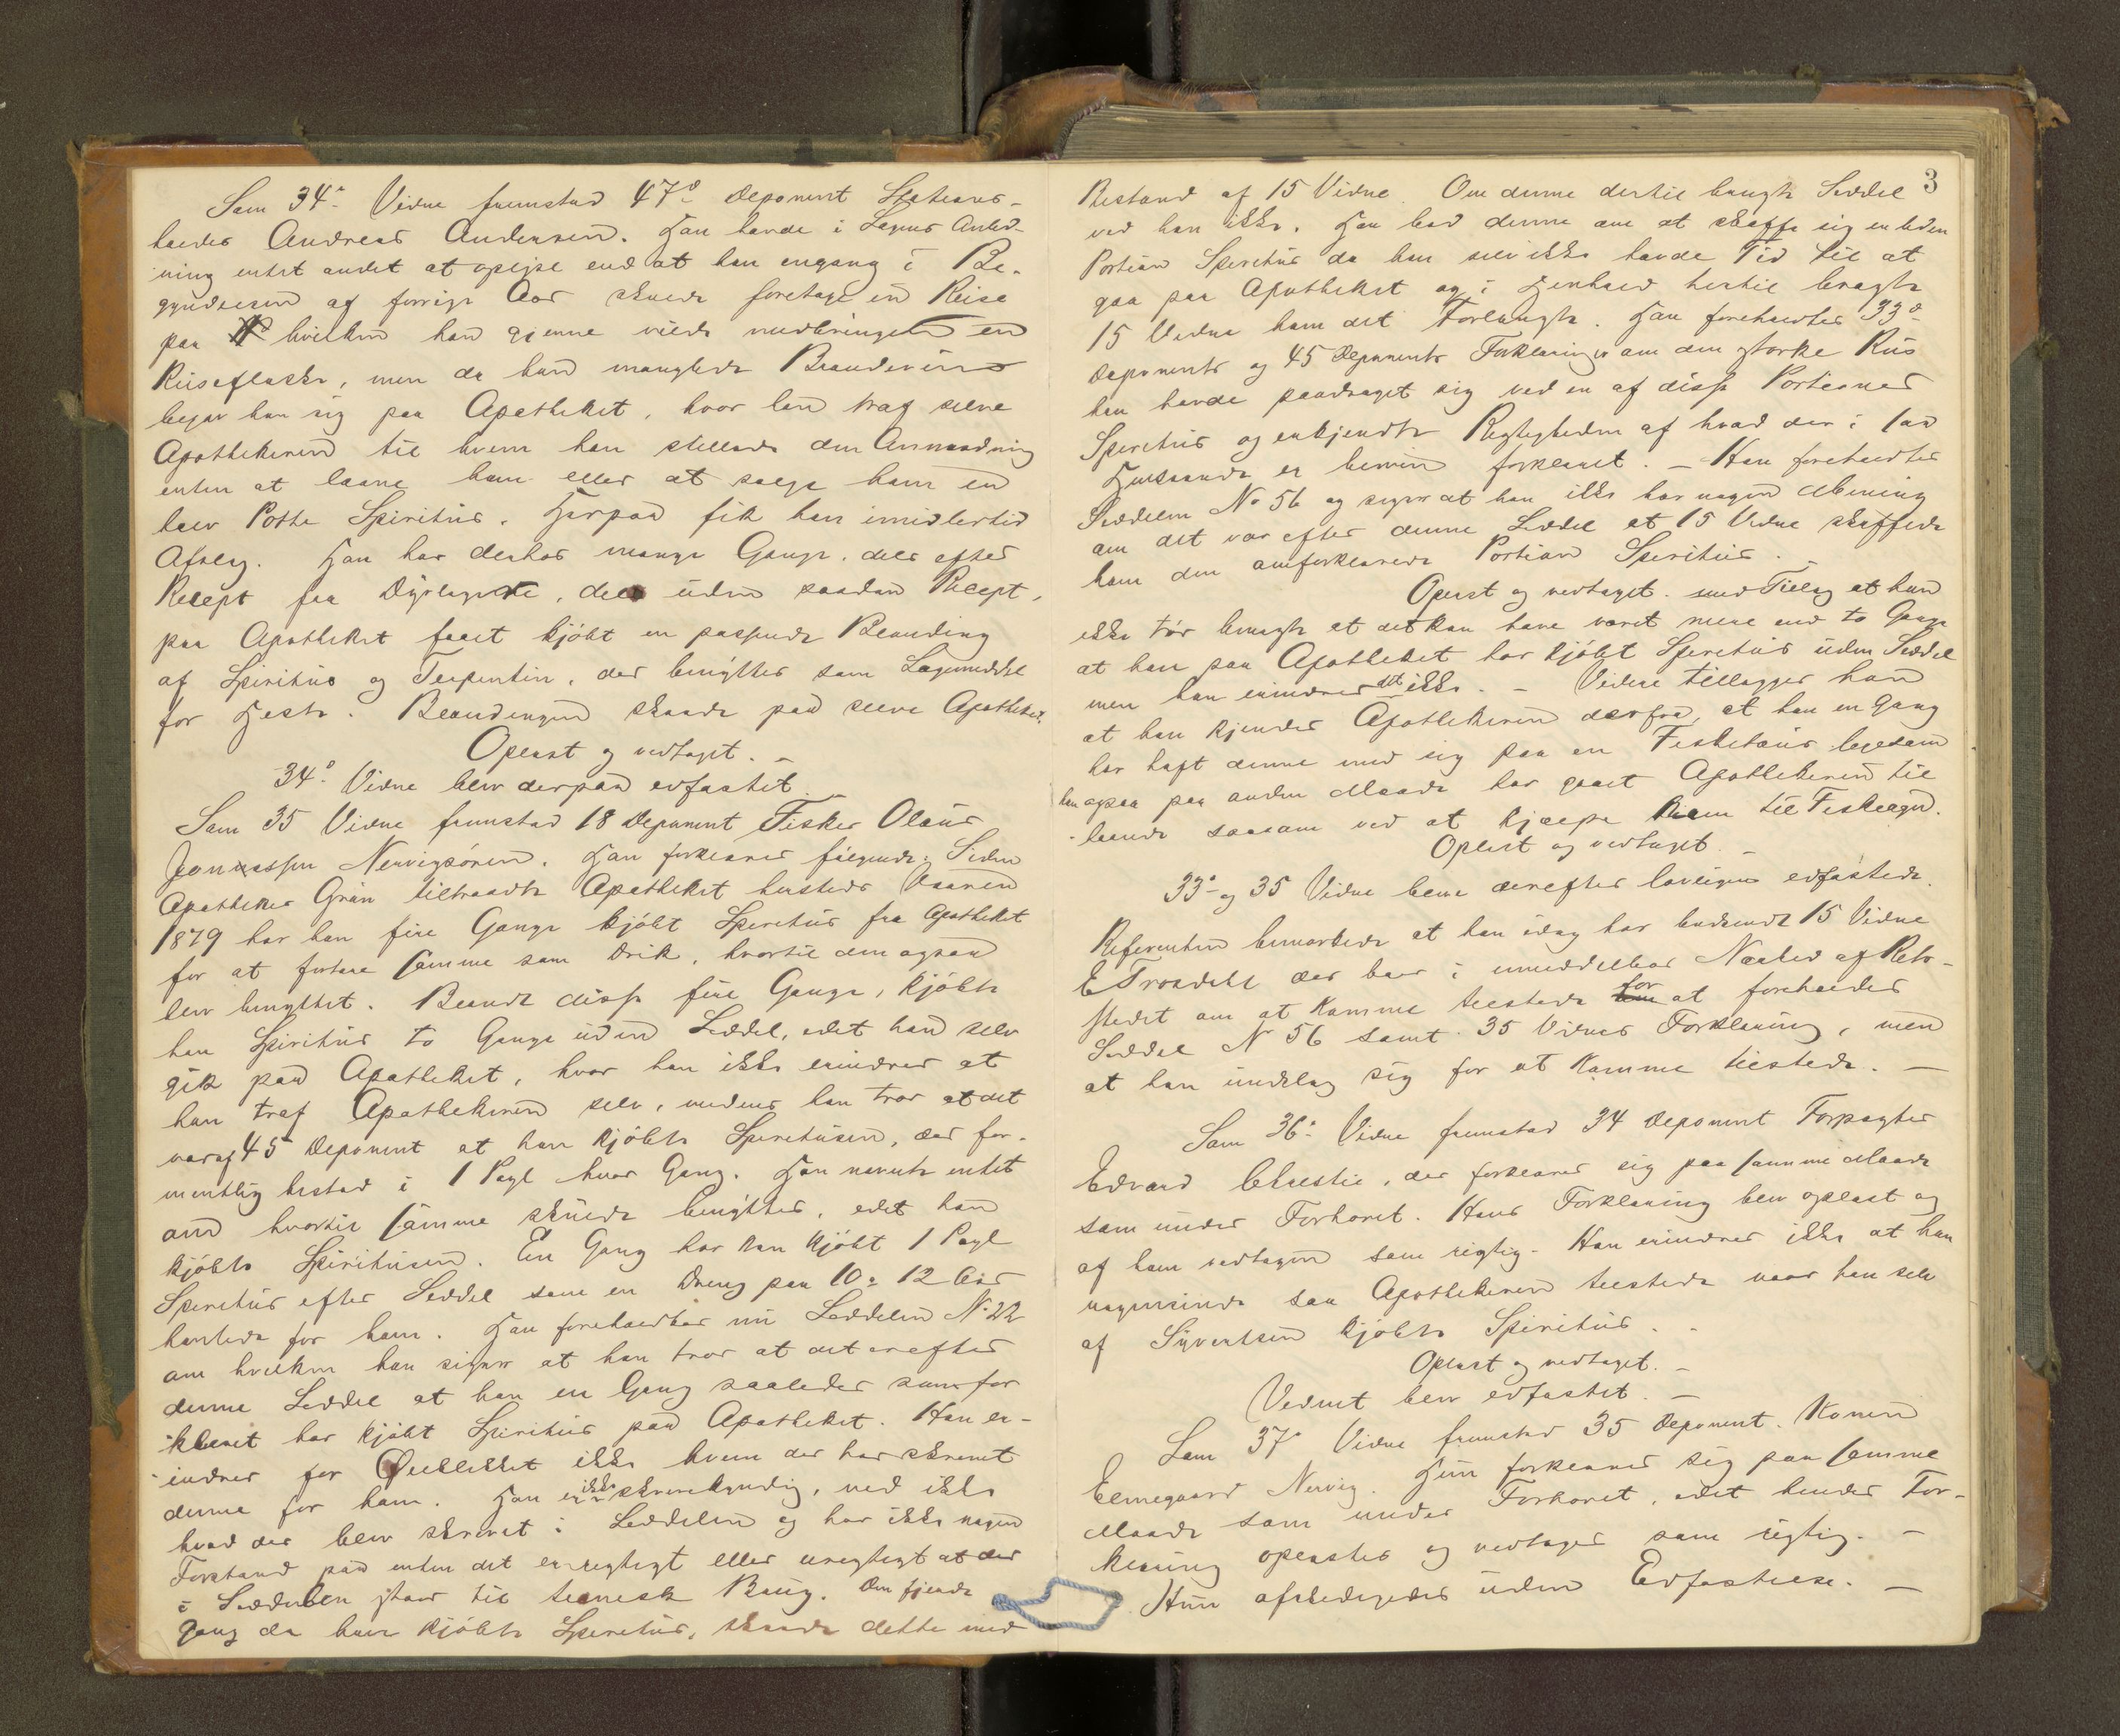 Som 34te Vidne fremstod 47de Deponent Stations-
holder Andreas Andersen. Han havde i Sagens Anled-
ning intet andet at oplyse end at han engang i Be-
gyndelsen af forrige Aar skulde foretage en Reise
paa hvilken han gjerne vilde medbringe en
Reiseflaske, men da han manglede Brændeviin
begav han sig paa Apotheket, hvor han traf selve
Apothekeren til hvem han stillede den Anmodning
enten at laane ham eller at sælge ham en
halv Potte Spiritus. Herpaa fik han imidlertid
Afslag. Han har derhos mange Gange, dels efter
Recept fra Dyrlægerne, dels uden saadan Recept,
paa Apotheket faaet kjøbt en passende Blanding
af Spiritus og Terpentin, der benyttes som Lægemiddel
for Heste. Blandingen skeede paa selve Apotheket.
Oplæst og vedtaget. –
34de Vidne blev derpaa edfæstet. –
Som 35 Vidne fremstod 18 Deponent Fisker Olaus
Jonassen Nervigsøren. Han forklarer følgende: Siden
Apotheker Grøn tiltraadte Apotheket hersteds Vaaren
1879 har han fire Gange kjøbt Spiritus fra Apotheket
for at fortære samme som Drik, hvortil den ogsaa
blev benyttet. Blandt disse fire Gange, kjøbte
han Spiritus to Gange uden Seddel, idet han selv
gik paa Apotheket, hvor han ikke erindrer at
han traf Apothekeren selv, medens han tror at det
var af 45 Deponent at han kjøbte Spiritusen, der for-
mentlig bestod i 1 Pægl hver Gang. Han nævnte intet
om hvortil samme skulde benyttes, idet han
kjøbte Spiritusen. En Gang har han kjøbt 1 Pægl
Spiritus efter Seddel som en Dreng paa 10 a 12 Aar
hentede for ham. Han foreholdtes nu Seddelen No 22
om hvilken han siger at han tror at det er efter
denne Seddel at han en Gang saaledes som for-
klaret har kjøbt Spiritus paa Apotheket. Han er-
indrer for Øieblikket ikke hvem der har skrevet
denne for ham. Han er ikke skrivekyndig, ved ikke
hvad der blev skrevet i Seddelen og har ikke nogen
Forstand paa enten det er rigtigt eller urigtigt at der
i Seddelen staar til teknisk Brug. Den fjerde
Gang da han kjøbte Spiritus, skeede dette med
3
Bistand af 15 Vidne. Om denne dertil brugte Seddel
ved han ikke. Han bad denne om at skaffe sig en liden
Portion Spiritus da han selv ikke havde Tid til at
gaa paa Apotheket og i Henhold hertil bragte
15 Vidne ham det Forlangte. Han foreholdtes 33de
Deponents og 45 Deponents Forklaringer om den stærke Rus
han havde paadraget sig ved en af disse Portioner
Spiritus og erkjendte Rigtigheden af hvad der i saa
Henseende er bleven forklaret. – Han foreholdtes
Seddelen No 56 og siger at han ikke har nogen Mening
om det var efter denne Seddel at 15 Vidne skaffede
ham den omforklarede Portion Spiritus.
Oplæst og vedtaget. med Tillæg at han
ikke tør benægte at det kan have været mere end to Gange
at han paa Apotheket har kjøbt Spiritus uden Seddel
men han erindrer det ikke. – Videre tillægger han
at han kjender Apothekeren derfra, at han en Gang
har havt denne med sig paa en Fisketour ligesom
han ogsaa paa anden Maade har gaaet Apothekeren til
haande saasom ved at hjælpe ham til Fiskeagn.
Oplæst og vedtaget. –
33de og 35 Vidne bleve derefter lovligen edfæstede.
Referenten bemærkede at han idag har budsendt 15 Vidne
E Trosdahl der bor i umiddelbar Nærhed af Rets-
stedet om at komme tilstede for at foreholdes
Seddel No 56 samt 35 Vidnes Forklaring, men
at han undslog sig for at komme tilstede. –
Som 36te Vidne fremstod 34 Deponent Forpagter
Edvard Christie, der forklarer sig paa samme Maade
som under Forhøret. Hans Forklaring blev oplæst og
af ham vedtagen som rigtig. Han erindrer ikke at han
nogensinde saa Apothekeren tilstede naar han selv
af Syvertsen kjøbte Spiritus. –
Oplæst og vedtaget. –
Vidnet blev edfæstet. –
Som 37te Vidne fremstod 35 Deponent. Konen
Ellinegaard Nervig. Hun forklarer sig paa samme
Maade som under Forhøret, idet hendes For-
klaring oplæstes og vedtages som rigtig. –
Hun afskedigedes uden Edfæstelse. –